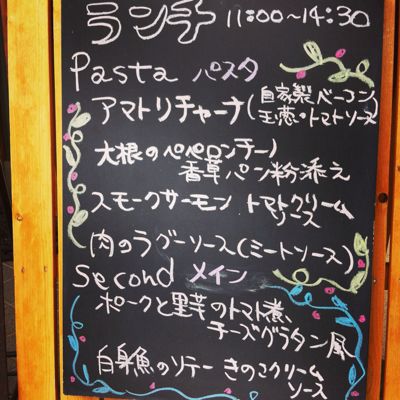 ランチ 11:00〜14:30
Pasta パスタ
アマトリチャーナ(自家製ベーコン、
玉葱・トマトソース)
大根のペペロンチーノ
香草パン粉添え
スモークサーモン トマトクリーム
ソース
肉のラグーソース(ミートソース)
Second メイン
ポークと里芋のトマト煮、
チーズグラタン風
白身魚のソテー きのこクリーム
ソース